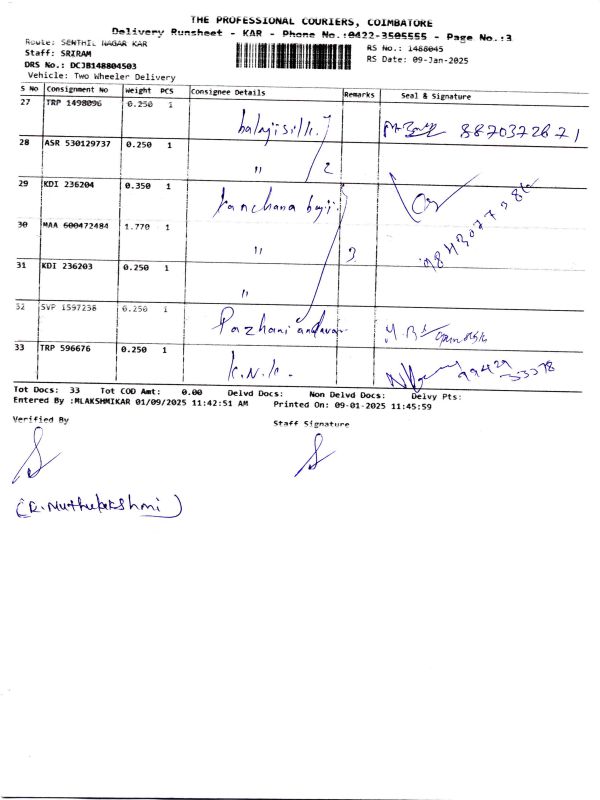 THE PROFESSIONAL COURIERS, COIMBATORE
Delivery Runsheet - KAR - Phone No.:0422-3505555 - Page No.:3
Route: SENTHIL NAGAR KAR
RS No.: 1488045
Staff: SRIRAM
RS Date: 09-Jan-2025
DRS No.: DCJB148804503
Vehicle: Two Wheeler Delivery
S No Consignment No Weight PCS Consignee Details Remarks Seal & Signature
27 TRP 1498096 0.250 1 balajisilk. 8870372871
28 ASR 530129737 0.250 1 " 2
29 KDI 236204 0.350 1 kanchana
30 MAA 600472484 1.770 1 " 3
31 KDI 236203 0.250 1 "
32 SVP 1597238 0.250 1 Pazhani andavar
33 TRP 596676 0.250 1 K.N.K.
Tot Docs: 33 Tot COD Amt: 0.00 Delvd Docs: Non Delvd Docs: Delvy Pts:
Entered By :MLAKSHMIKAR 01/09/2025 11:42:51 AM Printed On: 09-01-2025 11:45:59
Verified By
Staff Signature